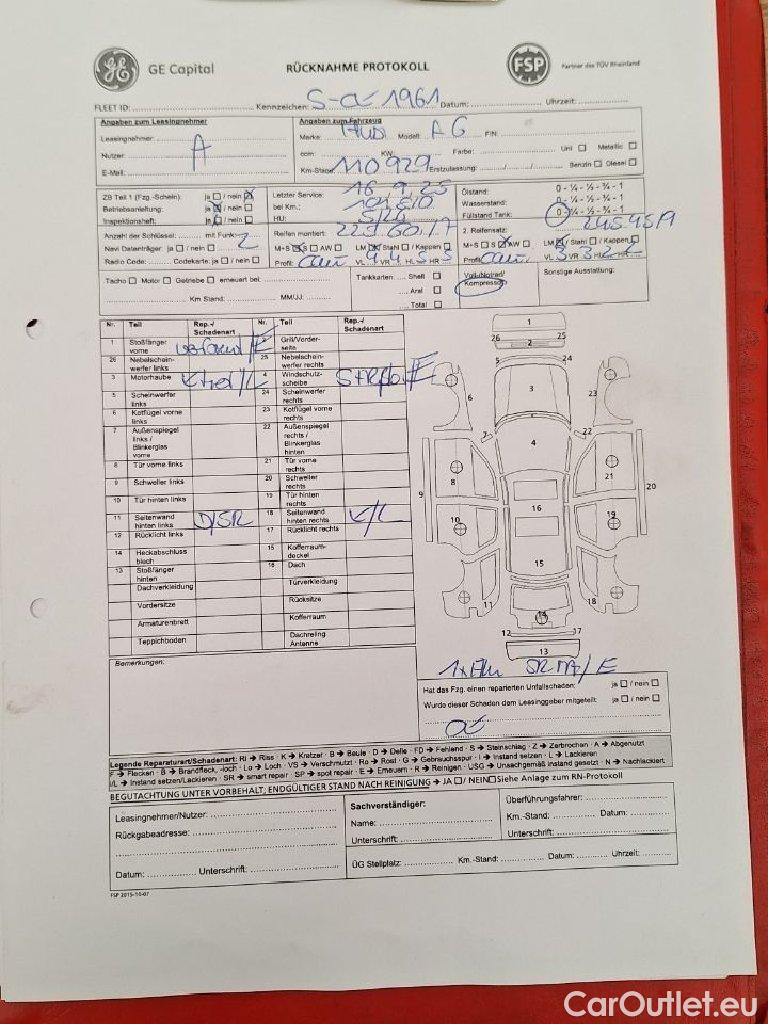 GE Capital RÜCKNAHME PROTOKOLL FSP Partner des TÜV Rheinland
FLEET ID: Kennzeichen: S-a 1961 Datum: Uhrzeit:
Angaben zum Leasingnehmer
Angaben zum Fahrzeug
Leasingnehmer:
Marke: Audi Modell: A6 FIN:
Nutzer: A
ccm: KW: Farbe: Uni Metallic
E-Mail:
Km-Stand: 110929 Erstzulassung: / / Benzin Diesel
ZB Teil 1 (Fzg.-Schein): ja / nein
Letzter Service: 16.9.25
Ölstand: 0 - ¼ - ½ - ¾ - 1
Betriebsanleitung: ja / nein
bei Km.:
Wasserstand: 0 - ¼ - ½ - ¾ - 1
Inspektionsheft: ja / nein
HU: 5/26
Füllstand Tank: 0 - ¼ - ½ - ¾ - 1
Anzahl der Schlüssel: mit Funk: 2
Reifen montiert:
2. Reifensatz: 245 45 19
Navi Datenträger: ja / nein
M+S S AW LM / Stahl / Kappen
M+S S AW LM / Stahl / Kappen
Radio Code: Codekarte: ja / nein
Profil: VL 4 VR 4 HL 5 HR 5
Profil: VL 3 VR 3 HL 2 HR 2
Tacho Motor Getriebe erneuert bei:
Tankkarten: Shell
Kompressor
Sonstige Ausstattung:
Aral
Km Stand: MM/JJ:
Total
Nr. Teil Rep.-/ Schadenart Nr. Teil Rep.-/ Schadenart
1 Stoßfänger vorne /E Grill/Vorder-seite
26 Nebelschein-werfer links 25 Nebelschein-werfer rechts
3 Motorhaube /L 4 Windschutz-scheibe /E
5 Scheinwerfer links 24 Scheinwerfer rechts
6 Kotflügel vorne links 23 Kotflügel vorne rechts
7 Außenspiegel links / Blinkerglas vorne 22 Außenspiegel rechts / Blinkerglas hinten
8 Tür vorne links 21 Tür vorne rechts
9 Schweller links 20 Schweller rechts
10 Tür hinten links 19 Tür hinten rechts
11 Seitenwand hinten links D/SR 18 Seitenwand hinten rechts K/L
12 Rücklicht links 17 Rücklicht rechts
14 Heckabschluss blech 15 Kofferraum-deckel
13 Stoßfänger hinten 16 Dach
Dachverkleidung Türverkleidung
Vordersitze Rücksitze
Armaturenbrett Kofferraum
Teppichboden Dachreling Antenne
1
26 25
2
5 24
3
6 23
7 22
4
8 21
9 20
16
10 19
15
11 18
14
12 17
13
Bemerkungen:
/E
Hat das Fzg. einen reparierten Unfallschaden: ja / nein
Wurde dieser Schaden dem Leasinggeber mitgeteilt: ja / nein
Legende Reparaturart/Schadenart: RI → Riss · K → Kratzer · B → Beule · D → Delle · FD → Fehlend · S → Steinschlag · Z → Zerbrochen · A → Abgenutzt
F → Flecken · B → Brandfleck, -loch · Lo → Loch · VS → Verschmutzt · Ro → Rost · G → Gebrauchsspur · I → Instand setzen · L → Lackieren
I/L → Instand setzen/Lackieren · SR → smart repair · SP → spot repair · E → Erneuern · R → Reinigen · USG → Unsachgemäß instand gesetzt · N → Nachlackiert
BEGUTACHTUNG UNTER VORBEHALT; ENDGÜLTIGER STAND NACH REINIGUNG → JA / NEIN Siehe Anlage zum RN-Protokoll
Leasingnehmer/Nutzer:
Sachverständiger:
Überführungsfahrer:
Rückgabeadresse:
Name:
Km.-Stand: Datum:
Unterschrift:
Unterschrift:
Datum: Unterschrift:
ÜG Stellplatz: Km.-Stand: Datum: Uhrzeit:
FSP 2015-10-07
CarOutlet.eu